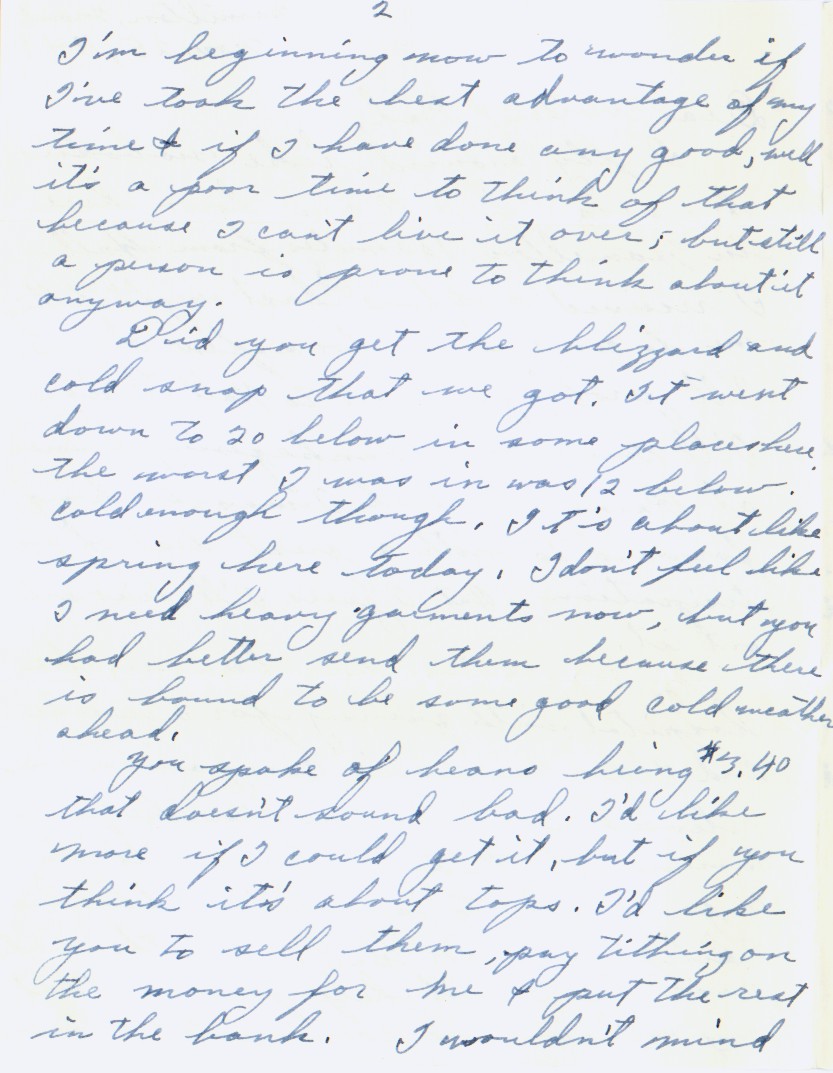 2
I'm beginning now to wonder if
I've took the best advantage of my
time & if I have done any good, well
it's a poor time to think of that
because I can't live it over; but still
a person is prone to think about it
anyway.
Did you get the blizzard and
cold snap that we got. It went
down to 20 below in some places here.
the worst I was in was 12 below.
cold enough though. It's about like
spring here today. I don't feel like
I need heavy garments now, but you
had better send them because there
is bound to be some good cold weather
ahead.
You spoke of beans being $3.40
that doesn't sound bad. I'd like
more if I could get it, but if you
think it's about tops. I'd like
you to sell them, pay tithing on
the money for me & put the rest
in the bank. I wouldn't mind